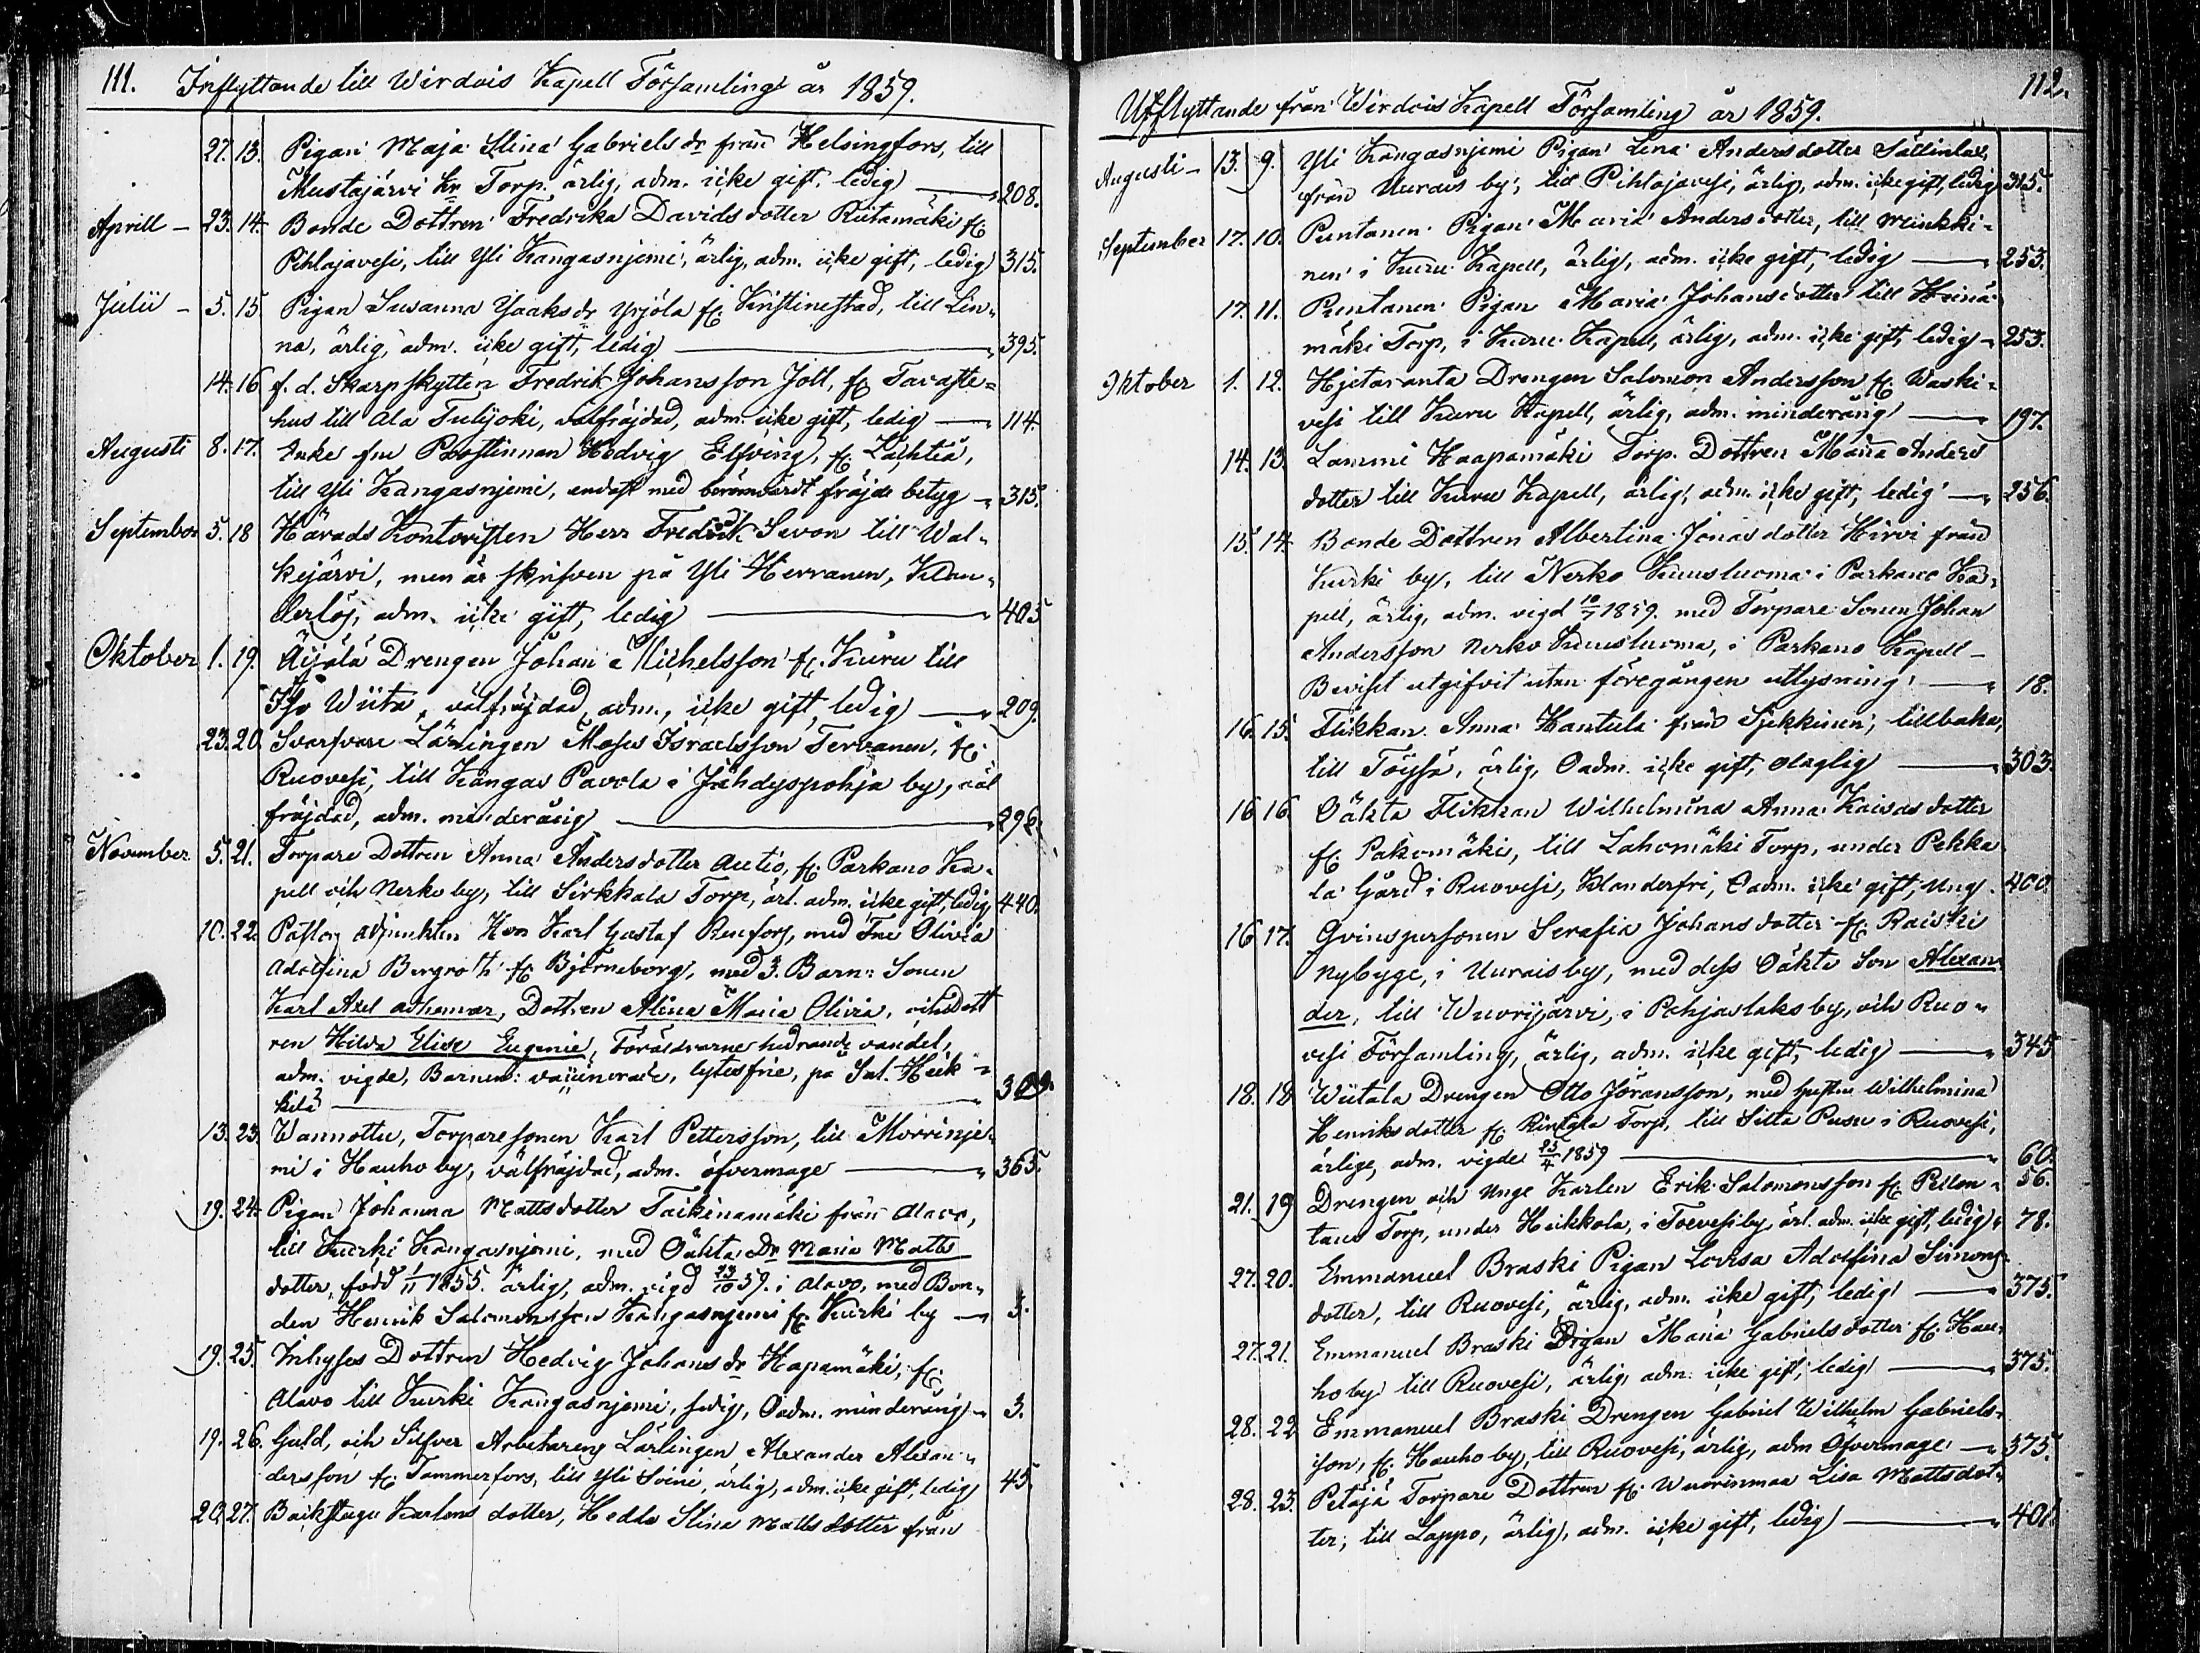 111. Inflyttande till Wirdois Kapell Församling år 1859.
27. 13. Pigan Maja Stina Gabrielsdr från Helsingfors, till
Mustajärvi Kr Torp. ärlig, adm. icke gift, ledig — 208.
Aprill — 23. 14. Bonde Dottren Fredrika Davidsdotter Riitamäki fr.
Pihlajavesi, till Yli Kangasnjemi, ärlig, adm. icke gift, ledig 315.
Julii — 5. 15. Pigan Susanna Isaaksdr Yrjölä fr. Kristinestad, till Lin-
na, ärlig, adm. icke gift, ledig — 395.
14. 16. f. d. Skarpskytten Fredrik Johansson Joll, fr. Tavaste-
hus till Ala Tulijoki, välfräjdad, adm. icke gift, ledig — 114.
Augusti 8. 17. Enke fru Prostinnan Hedvig Elfving, fr. Lähtiä,
till Yli Kangasnjemi, endast med berömvärdt fräjde betyg — 315.
September 5. 18. Härads Kontoristen Herr Fredrik Sevon till Wal-
kejärvi, men är skrifven på Yli Herranen, Klan-
derlös, adm. icke gift, ledig — 405
Oktober 1. 19. Äijälä Drengen Johan Michelsson fr. Kuru till
Iso Wiita, välfräjdad, adm., icke gift, ledig — 209.
23. 20. Svarfvare Lärlingen Moses Israelsson Tervanen, fr.
Ruovesi, till Kangas Pavola i Jähdyspohja by, väl
fräjdad, adm. minderårig — 296.
November 5. 21. Torpare Dottren Anna Andersdotter Autio, fr. Parkano Ka-
pell och Nerko by, till Sirkkala Torp, ärl. adm. icke gift, ledig 440.
10. 22. Pastors adjunkten Herr Karl Gustaf Renfors, med Fru Olivia
Adolfina Bergroth fr. Björneborg, med 3. Barn: Sonen
Karl Axel Athanar, Dottren Alina Maria Olivia, och Dott
ren Hilda Elise Eugenie, Föräldrarne hedrande vandel,
adm. vigde, Barnen: vaccinerade, lytesfrie, på Sal. Heik-
kilä — 309.
13. 23. Wannottu, Torparesonen Karl Pettersson, till Morrinje-
mi i Hauho by, välfräjdad, adm. öfvermage — 365.
19. 24. Pigan Johanna Mattsdotter Taikinamäki från Alavo,
till Kurki Kangasnjemi, med Oäkta Dr Maria Matts
dotter, född 1/11 1855. ärlig, adm. vigd 23/10 59. i Alavo, med Bon-
den Henrik Salomonsson Kangasnjemi fr. Kurki by — 3.
19. 25. Inhyses Dottren Hedvig Johansdr Hapamäki, fr.
Alavo till Kurki Kangasnjemi, fredig, Oadm. minderårig — 3.
19. 26. Guld, och Silfver Arbetarens Lärlingen Alexander Alexan-
dersson fr. Tammerfors, till Yli Soini, ärlig, adm. icke gift, ledig 45.
20. 27. Backstugu Karlens dotter, Hedda Stina Mattsdotter från
112.
Utflyttande från Wirdois Kapell Församling år 1859.
Augusti — 13. 9. Yli Kangasnjemi Pigan Lena Andersdotter Sällinlax,
från Uurais by, till Pihlajavesi, ärlig, adm. icke gift, ledig 315.
September 17. 10. Puntanen Pigan Maria Andersdotter, till Minkki-
nen i Kuru Kapell, ärlig, adm. icke gift, ledig — 253.
17. 11. Puntanen Pigan Maria Johansdotter till Heinä-
mäki Torp, i Kuru Kapell, ärlig, adm. icke gift, ledig — 253.
Oktober 1. 12. Hjetaranta Drengen Salomon Andersson fr. Waski-
vesi till Kuru Kapell, ärlig, adm. minderårig — 197.
14. 13. Lammi Haapamäki Torp. Dottren Maria Anders
dotter till Kuru Kapell, ärlig, adm. icke gift, ledig — 256.
15. 14. Bonde Dottren Albertina Jonasdotter Hirvi från
Kurki by, till Nerko Kuusluoma i Parkano Ka-
pell, ärlig, adm. vigd 10/7 1859. med Torpare Sonen Johan
Andersson Nerko Kuusluoma, i Parkano Kapell —
Beviset utgifvit utan föregången utlysning. — 18.
16. 15. Flikkan Anna Hantula från Sjekkinen, tillbaka,
till Töysä, ärlig, Oadm. icke gift, olaglig — 303.
16. 16. Oäkta Flikkan Wilhelmina Anna Kaisasdotter
fr. Pakomäki, till Lahomäki Torp, under Pekka
la Gård i Ruovesi, Klanderfri, Oadm. icke gift, ung. 400.
16. 17. Qvinspersonen Serafia Johansdotter fr. Raiski
nybygge, i Uurais by, med dess Oäkta Son Alexan
der, till Wuorijärvi, i Pohjaslaks by, och Ruo-
vesi Församling, ärlig, adm. icke gift, ledig — 345
18. 18. Wiitala Drengen Otto Jöransson, med hustru Wilhelmina
Henriksdotter fr. Rintala Torp, till Sitta Pusu i Ruovesi,
ärlige, adm. vigde 25/4 1859 — 60.
21. 19. Drengen och Unge Karlen Erik Salomonsson fr. Pellon- 56.
taus Torp, under Heikkola, i Toevesi by, ärl. adm. icke gift, ledig 78.
27. 20. Emmanuel Braski Pigan Lovisa Adolfina Simons-
dotter, till Ruovesi, ärlig, adm. icke gift, ledig — 375.
27. 21. Emmanuel Braski Pigan Maria Gabrielsdotter fr. Hau-
ho by till Ruovesi, ärlig, adm. icke gift, ledig — 375.
28. 22. Emmanuel Braski Drengen Gabriel Wilhelm Gabriels-
son, fr. Hauho by, till Ruovesi, ärlig, adm Öfvermage — 375.
28. 23. Petäjä Torpare Dottren fr. Wuorinmaa Lisa Mattsdot-
ter, till Lappo, ärlig, adm. icke gift, ledig — 401